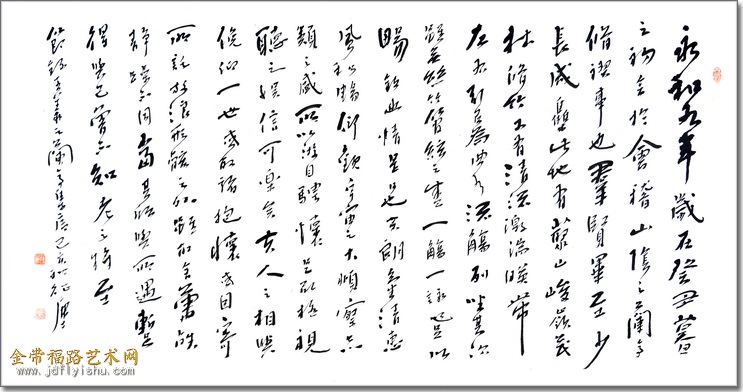 永和九年歲在癸丑暮
之初會於會稽山陰之蘭亭
脩禊事也羣賢畢至少
長咸集此地有崇山峻嶺茂
林脩竹又有清流激湍暎帶
左右引以為曲水流觴列坐其次
雖無絲竹管絃之盛一觴一詠亦足以
暢敘幽情是日也天朗氣清惠
風和暢仰觀宇宙之大俯察品
類之盛所以遊目騁懷足以極視
聽之娛信可樂也夫人之相與
俯仰一世或取諸抱懷或因寄
所託放浪形骸之外雖取舍萬殊
靜躁不同當其欣與所遇暫
得與己曾不知老之將至
節錄王羲之蘭亭集序
金带福路艺术网
www.jdflyishu.com